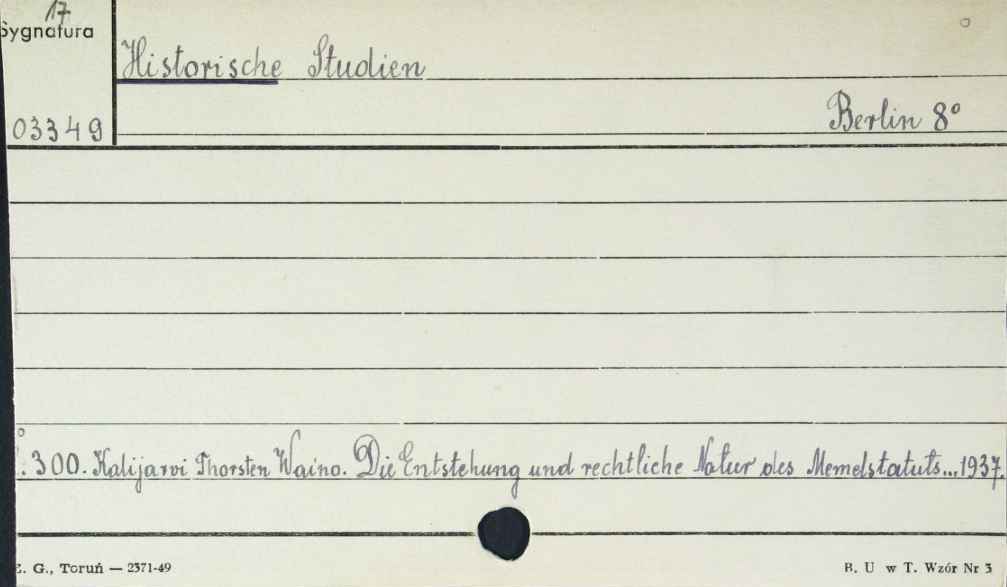 17
Sygnatura
Historische Studien
03349
Berlin 8°
. 300. Kalijarvi Thorsten Waino. Die Entstehung und rechtliche Natur des Memelstatuts... 1937.
E. G., Toruń — 2371-49
B. U w T. Wzór Nr 3